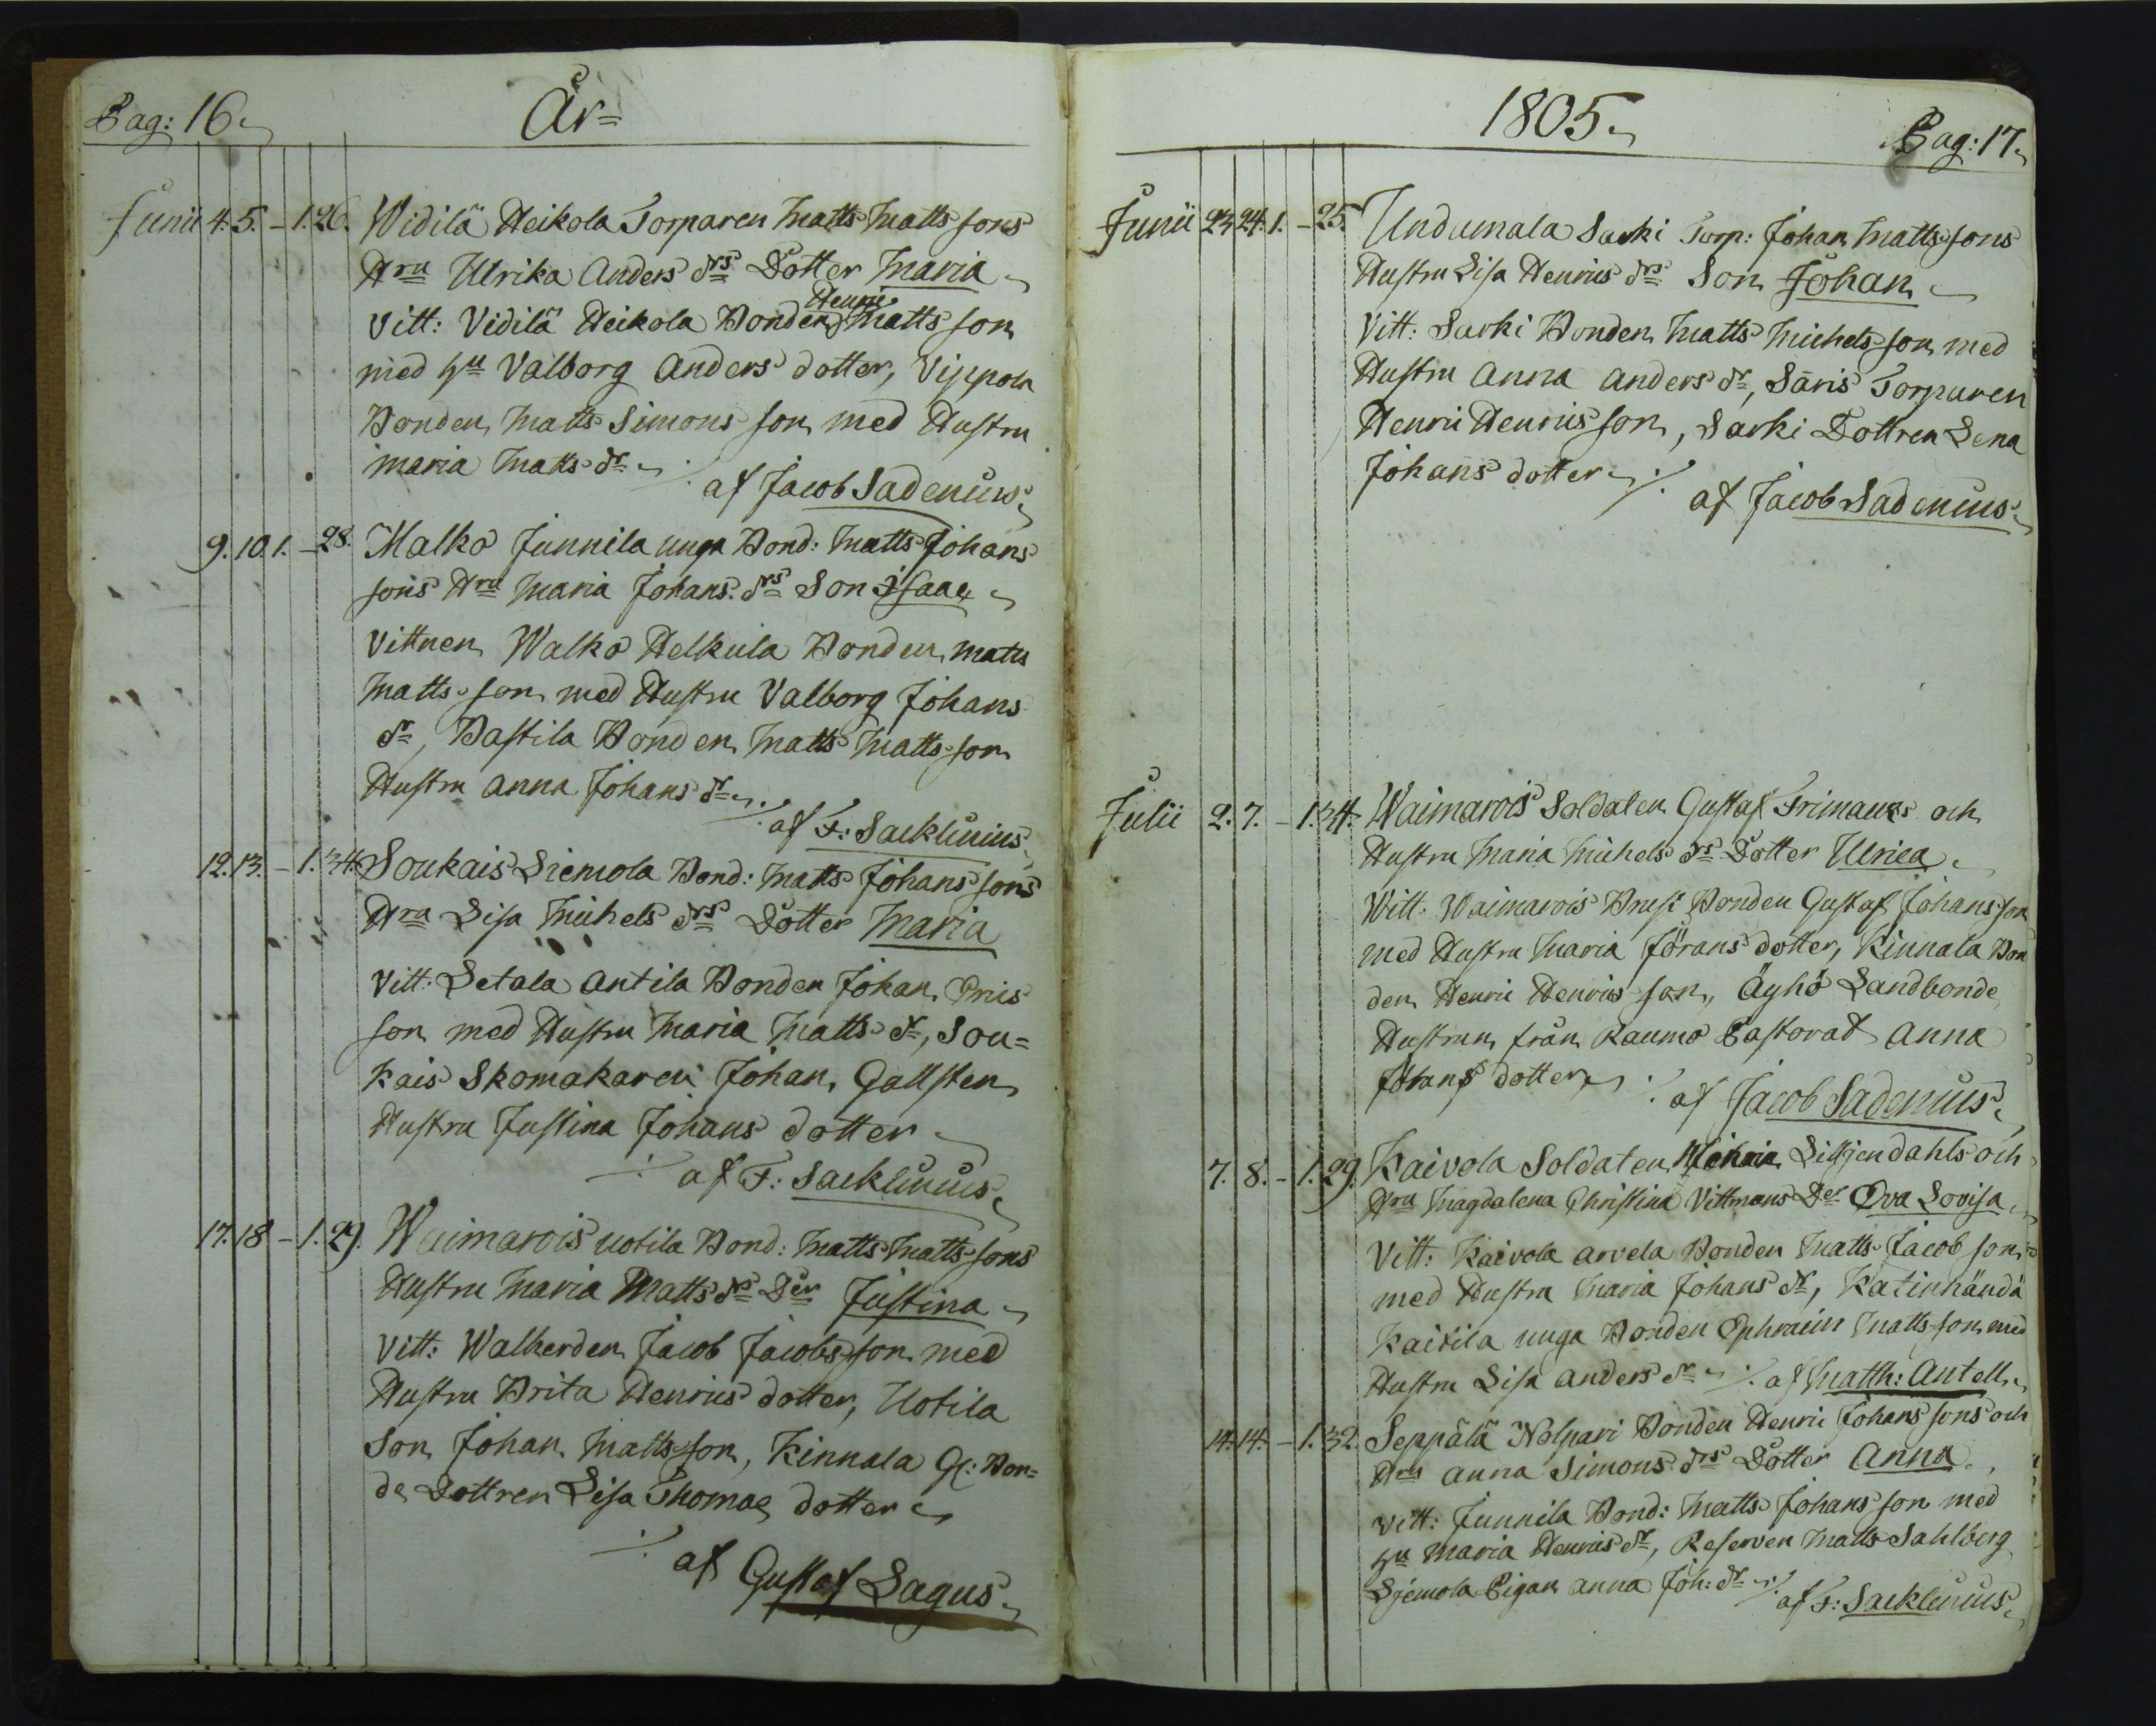 Pag: 16.
År=
Junii 4. 5. - 1. 26. Widilä Heikola Torparen Matts Mattssons
Hru Ulrika Anders drs Dotter Maria
Vitt: Vidilä Heikola Bonden Henric Matts son
med Hu Valborg Anders dotter, Vippola
Bonden Matts Simons son med Hustru
Maria Matts dr ./. af Jacob Sadenius.
9. 10. 1. - 28. Malko Junnila unga Bond: Matts Johans
sons Hru Maria Johans drs Son Isaac
Vittnen Walko Helkula Bonden Matts
Matts son med Hustru Valborg Johans
dr, Bastila Bonden Matts Matts son
Hustru Anna Johans dr ./. af F: Sacklinius.
12. 13. - 1. 34. Soukais Siemola Bond: Matts Johans sons
Hru Lisa Michels drs Dotter Maria
Vitt: Letala Antila Bonden Johan Eris
son med Hustru Maria Matts dr, Sou=
kais Skomakaren Johan Gallsten
Hustru Justina Johans dotter
./. af F: Sacklinius.
17. 18 - 1. 29. Waimarois Uotila Bond: Matts Matts sons
Hustru Maria Matts drs Dter Justina
Vitt: Walherden Jacob Jacobsson med
Hustru Brita Henrics dotter, Uotila
Son Johan Mattsson, Kinnala Gl: Bon=
de Dottren Lisa Thomae dotter
./. af Gustaf Lagus.
1805.
Pag: 17.
Junii 23 24. 1. - 25. Undumala Sarki Torp: Johan Mattssons
Hustru Lisa Henrics drs Son Johan
Vitt: Sarki Bonden Matts Michelsson med
Hustru Anna Anders dr, Säris Torparen
Henric Henricsson, Sarki Dottren Lena
Johans dotter ./. af Jacob Sadenius.
Julii 2. 7. - 1. 34. Waimarois Soldaten Gustaf Frimans och
Hustru Maria Michels drs Dotter Ulrica.
Witt: Waimarois Prusi Bonden Gustaf Johansson
med Hustru Maria Jörans dotter, Kinnala Bon
den Henric Henrics son, Äyhö Landbonde
Hustrun från Raumo Pastorat Anna
Johans dotter ./. af Jacob Sadenius.
7. 8. - 1. 29. Kaivola Soldaten Lilljendahls och
Hru Magdalena Christina Vittmans Der Eva Lovisa
Vitt: Kaivola Arvela Bonden Matts Jacob son
med Hustru Maria Johans dr, Katinhändä
Kaitila unga Bonden Ephraim Mattsson med
Hustru Lisa Anders dr ./. af Matth: Antell.
14. 14. - 1. 32. Seppälä Nolpari Bonden Henric Johans sons och
Hru Anna Simons drs Dotter Anna.
Vitt: Junnila Bond: Matts Johans son med
Hu Maria Henrics dr, Reserven Matts Sahlberg
Sjemola Pigan Anna Joh: dr ./. af F: Sacklinius.